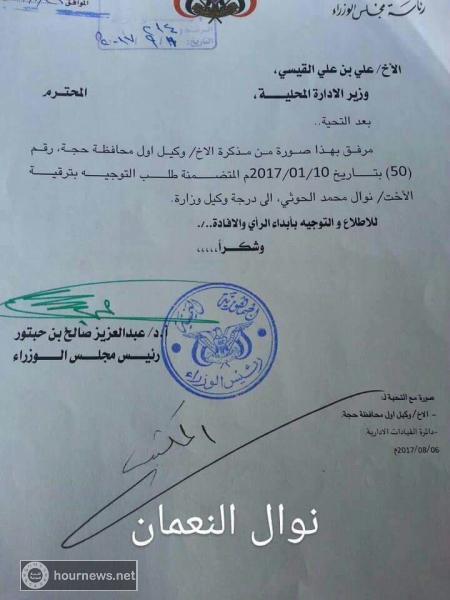 رئاسة مجلس الوزراء
الموافق
التاريخ:
الأخ/ علي بن علي القيسي،
وزير الادارة المحلية، المحترم
بعد التحية..
مرفق بهذا صورة من مذكرة الاخ/ وكيل اول محافظة حجة، رقم
(50) بتاريخ 2017/01/10م المتضمنة طلب التوجيه بترقية
الأخت/ نوال محمد الحوثي، الى درجة وكيل وزارة.
للاطلاع و التوجيه بأبداء الرأي والافادة../.
وشكراً،،،،،
أ.د/ عبدالعزيز صالح بن حبتور
رئيس مجلس الوزراء
الجمهورية اليمنية
رئيس الوزراء
صورة مع التحية لـ:
- الاخ/ وكيل اول محافظة حجة
-دائرة القيادات الادارية.
2017/08/06م
المكتب
نوال النعمان
hournews.net